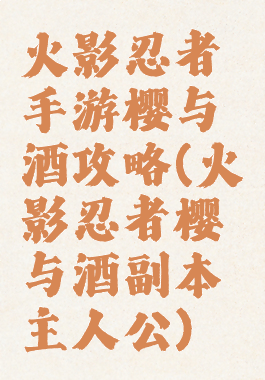 火影忍者
手游樱与
酒攻略(火
影忍者樱
与酒副本
主人公)